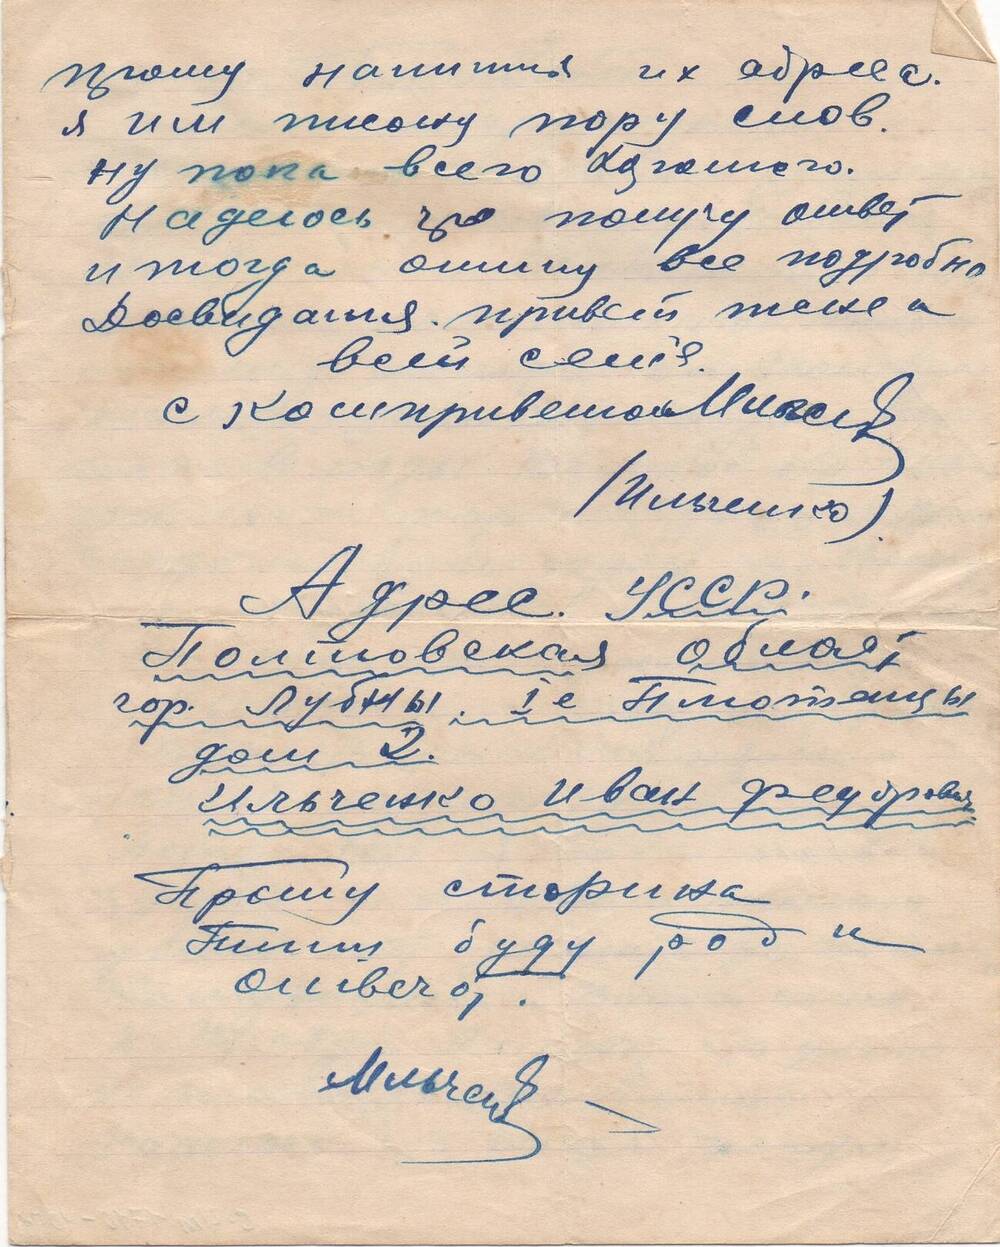 прошу напишия их адрес.
я им пиошу пору слов.
ну пока всего хорошего.
Надеюсь что получу ответ
и тогда опишу все подробно
Досвидания. привет жене и
всей семiя.
с комприветом Ильчен
(Ильченко).
Адрес. УССР.
Полтовская област
гор. Лубны. 1е
дом 2.
Ильченко Иван Федорович
Прошу сторина
Пиши буду рад и
отвечат.
Ильчен